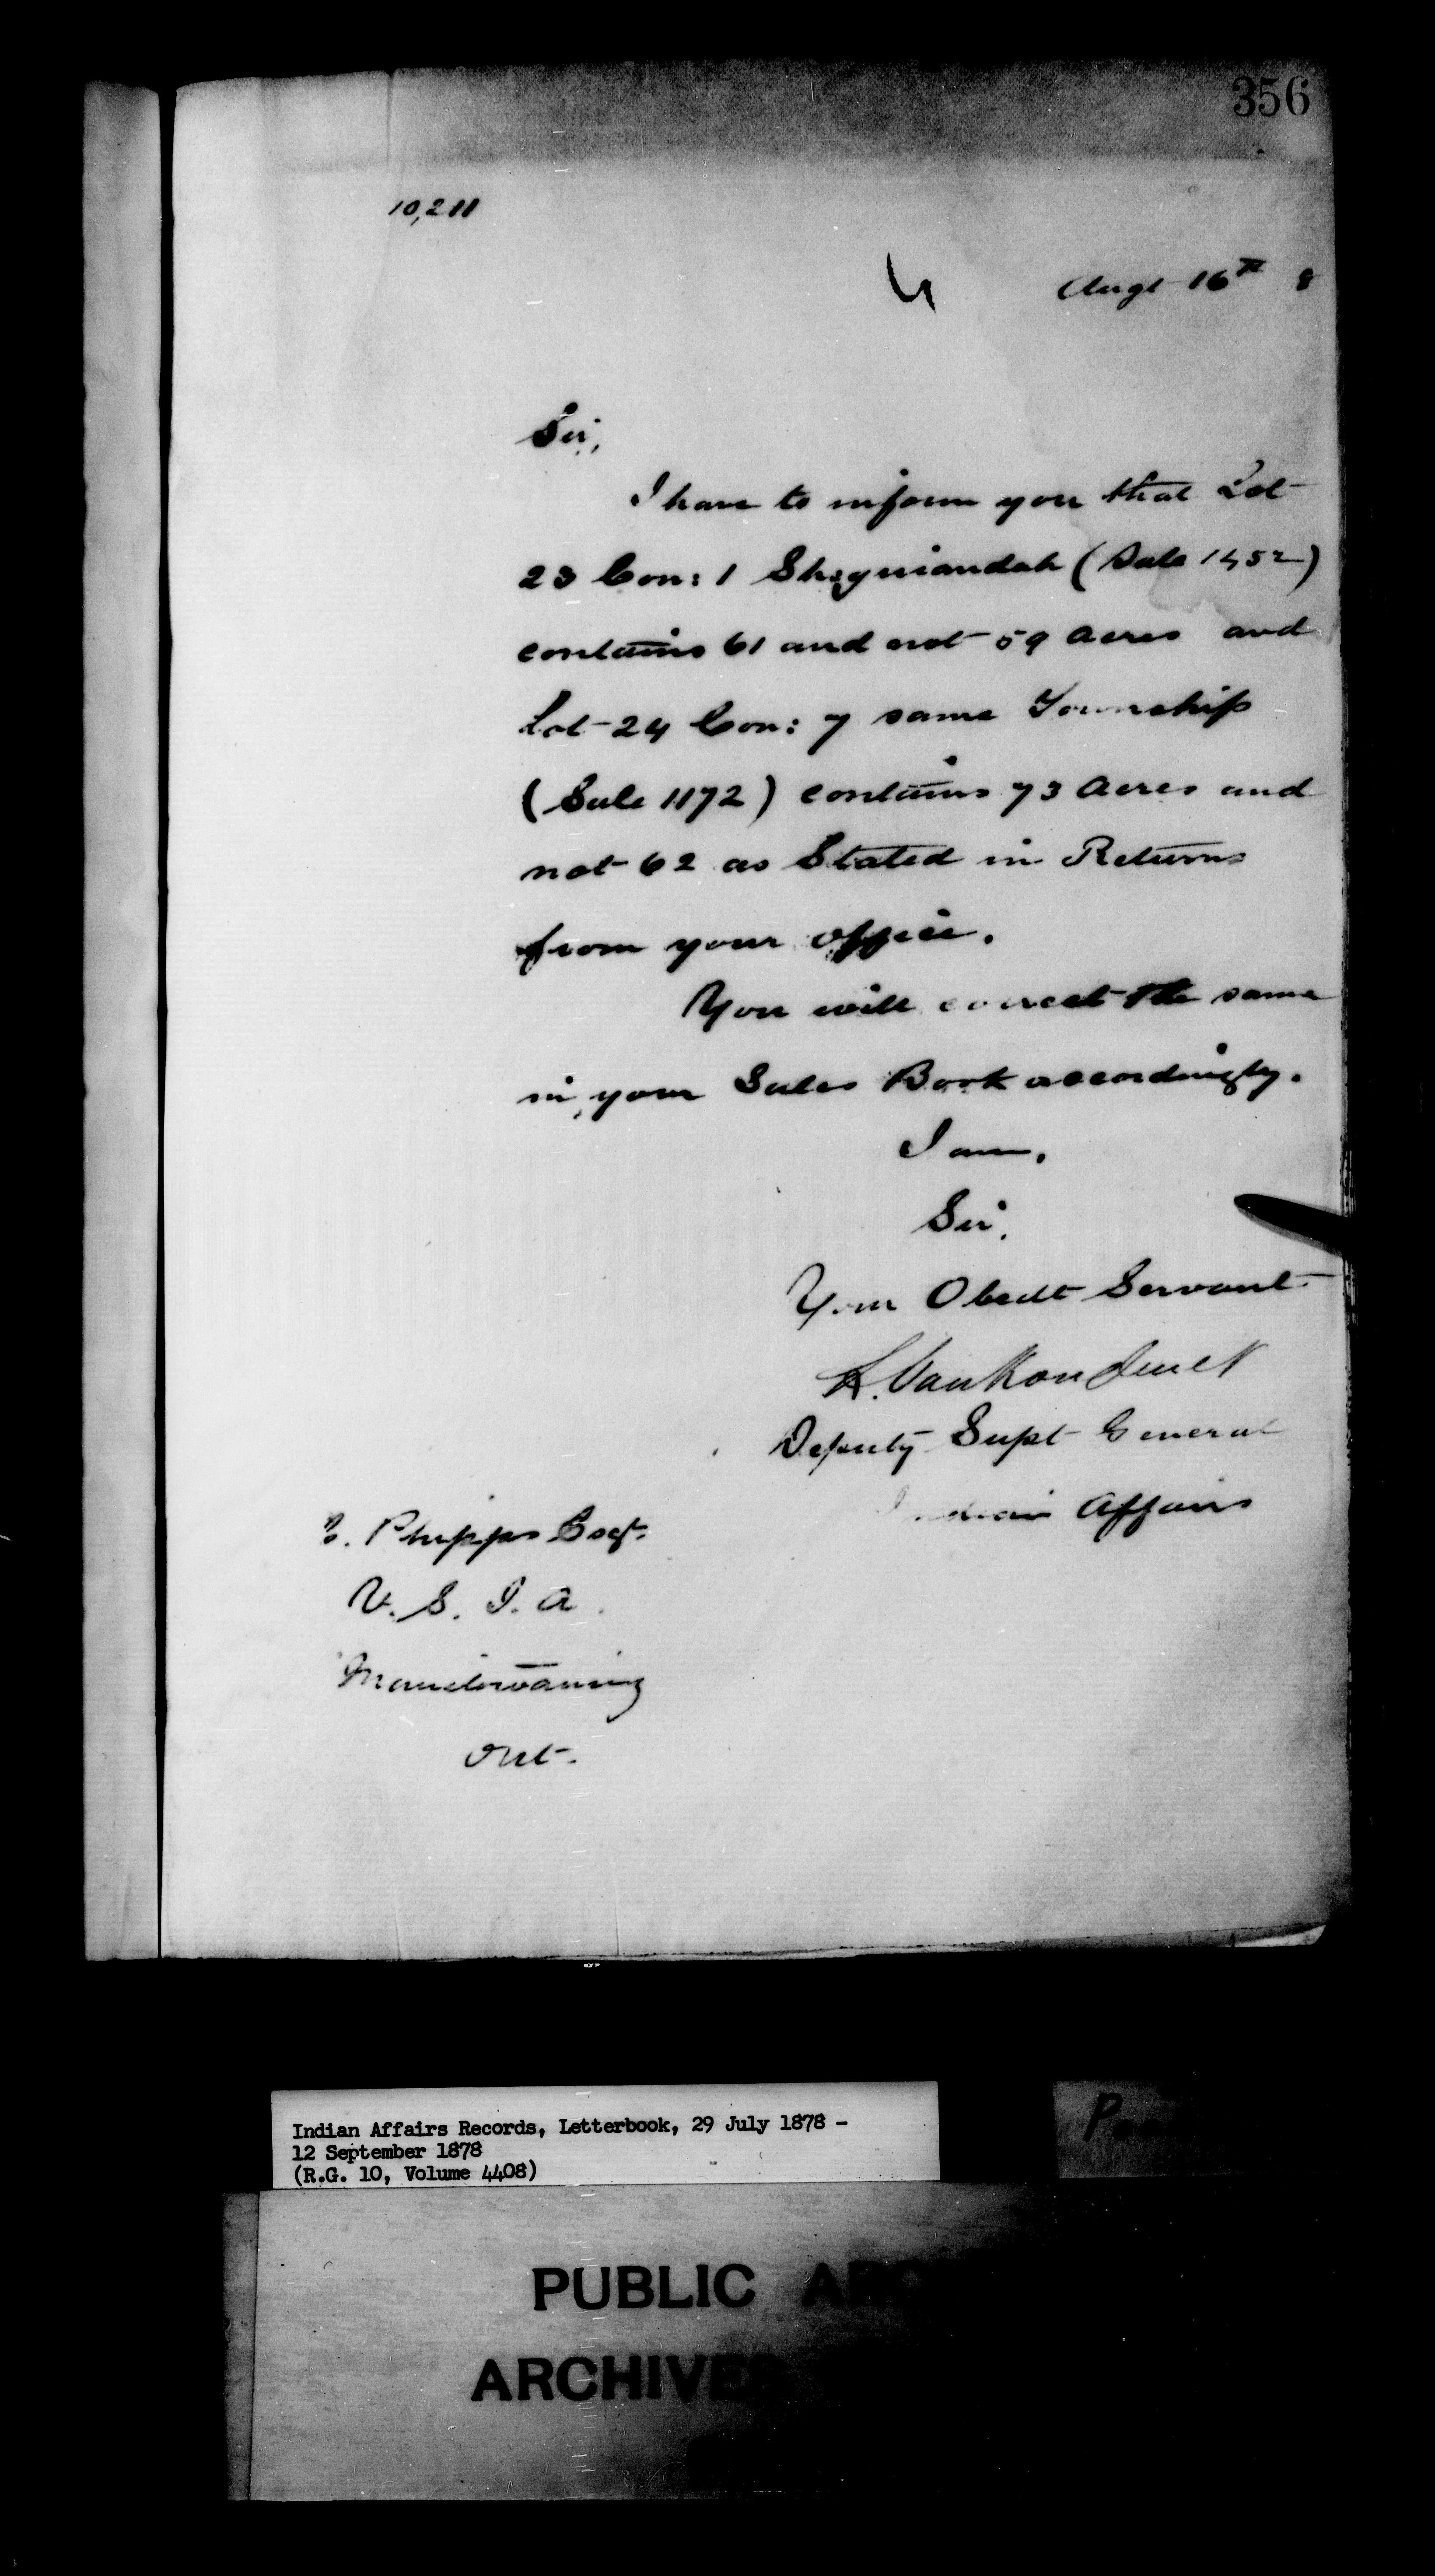 356
10,211
Augt 16th 8
Sir,
I have to inform you that Lot
23 Con: 1 Sheguiandah (Sale 1452)
contains 61 and not 59 acres and
Lot 24 Con: 7 same Township
(Sale 1172) contains 73 acres and
not 62 as Stated in Returns
from your office.
You will correct the same
in your Sales Book accordingly.
I am,
Sir,
Your Obedt Servant
L. VanKoughnet
Deputy Supt General
Indian Affairs
Phipps Esqr.
V. S. I. A.
Manitowaning
Ont.
Indian Affairs Records, Letterbook, 29 July 1878 -
12 September 1878
(R.G. 10, Volume 4408)
PUBLIC
ARCHIVES